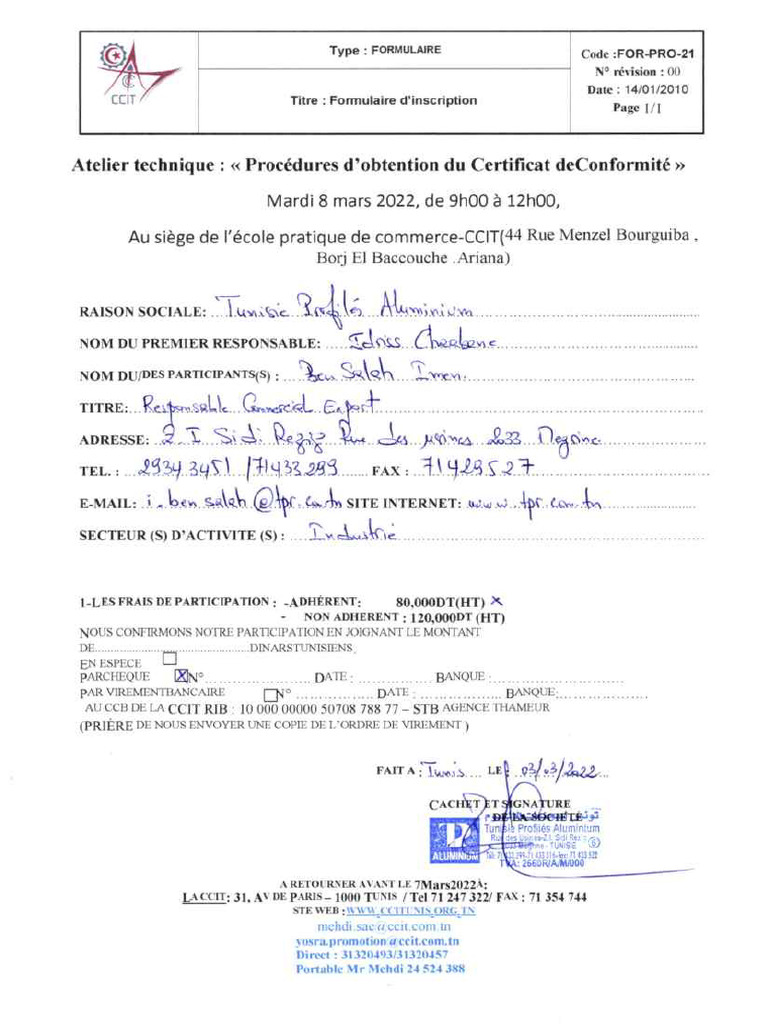 CCIT
Type : FORMULAIRE
Titre : Formulaire d'inscription
Code :FOR-PRO-21
N° révision : 00
Date : 14/01/2010
Page 1/1
Atelier technique : « Procédures d'obtention du Certificat deConformité »
Mardi 8 mars 2022, de 9h00 à 12h00,
Au siège de l'école pratique de commerce-CCIT(44 Rue Menzel Bourguiba ,
Borj El Baccouche .Ariana)
RAISON SOCIALE: Tunisie Profilés Aluminium
NOM DU PREMIER RESPONSABLE: Idriss
NOM DU/DES PARTICIPANTS(S) : Ben Salah Imen
TITRE: Responsable Commercial Export
ADRESSE: Z I Sidi Rezig Rue des usines 2033 Megrine
TEL. : 29343451 /71433299 FAX : 71429527
E-MAIL: i-ben salah @tpr.com.tn SITE INTERNET: www.tpr.com.tn
SECTEUR (S) D'ACTIVITE (S) : Industrie
1-LES FRAIS DE PARTICIPATION : -ADHÉRENT: 80,000DT(HT) x
- NON ADHERENT : 120,000DT (HT)
NOUS CONFIRMONS NOTRE PARTICIPATION EN JOIGNANT LE MONTANT
DE..............................................DINARSTUNISIENS,
EN ESPECE
PARCHEQUE x N°............................ DATE : ..................... BANQUE :............................
PAR VIREMENTBANCAIRE N° ..................... DATE : ................... BANQUE:........................
AU CCB DE LA CCIT RIB : 10 000 00000 50708 788 77 – STB AGENCE THAMEUR
(PRIÈRE DE NOUS ENVOYER UNE COPIE DE L'ORDRE DE VIREMENT )
FAIT A : Tunis LE : 03/03/2022
CACHET ET SIGNATURE
DE LA SOCIÉTÉ
Tunisie Profilés Aluminium
ALUMINIUM
TUNISIE
A RETOURNER AVANT LE 7Mars2022À:
LA CCIT: 31, AV DE PARIS – 1000 TUNIS / Tel 71 247 322/ FAX : 71 354 744
STE WEB :WWW.CCITUNIS.ORG.TN
mehdi.sac@ccit.com.tn
yosra.promotion@ccit.com.tn
Direct : 31320493/31320457
Portable Mr Mehdi 24 524 388